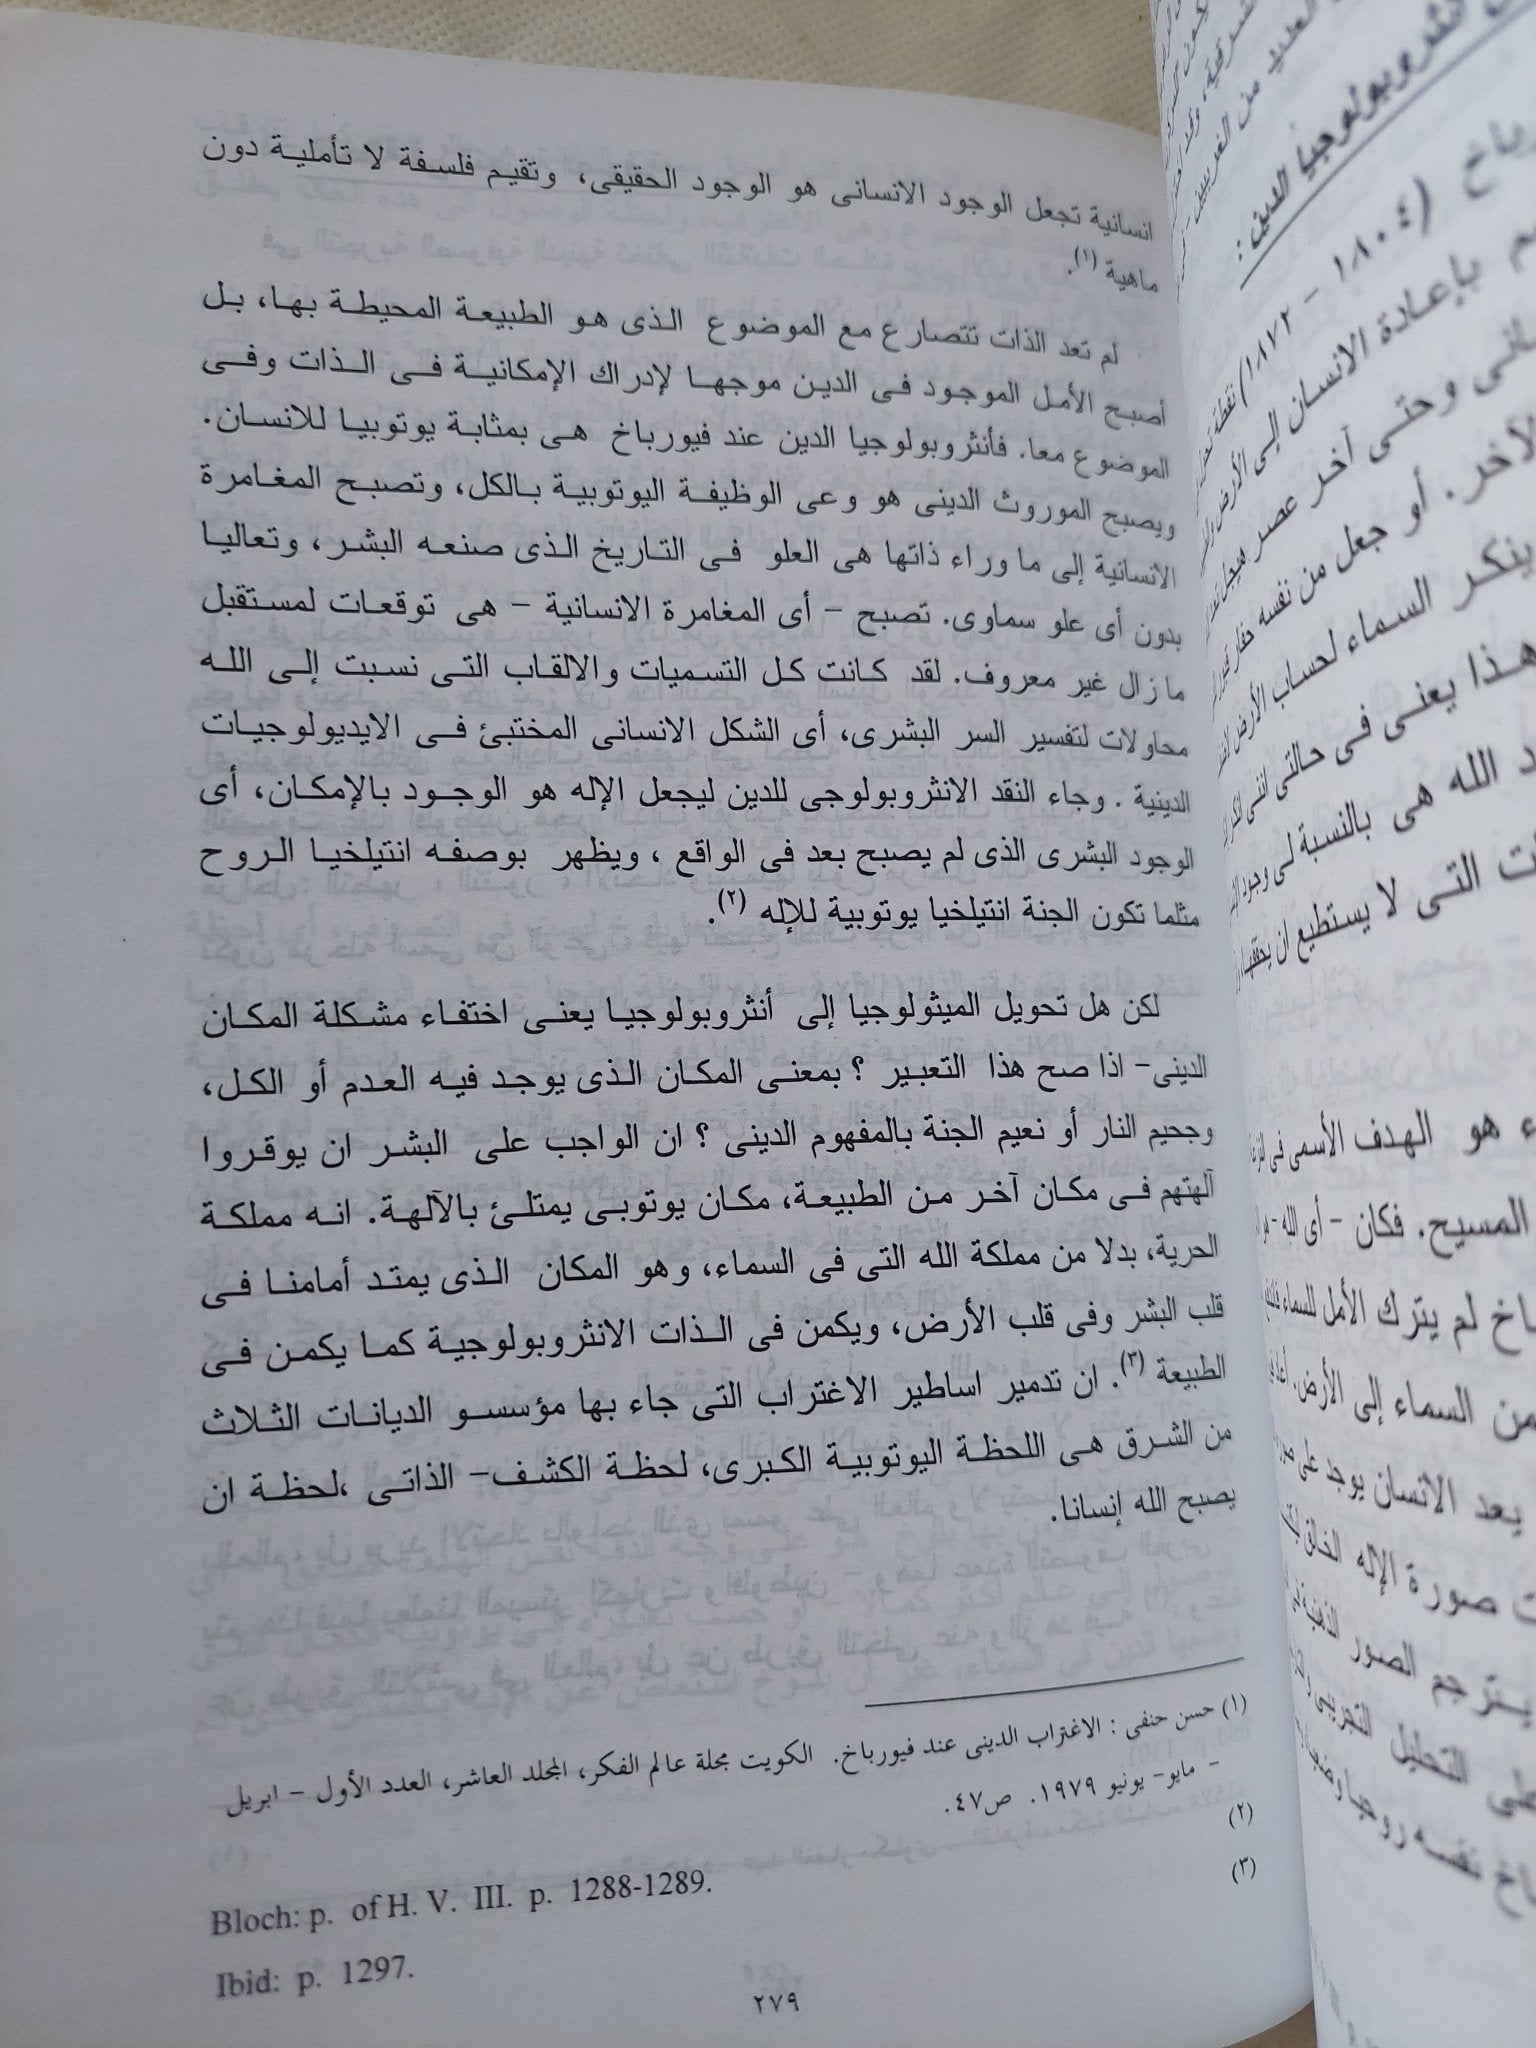 انسانية تجعل الوجود الانسانى هو الوجود الحقيقى، وتقيم فلسفة لا تأملية دون
ماهية (١).
لم تعد الذات تتصارع مع الموضوع الذى هو الطبيعة المحيطة بها، بل
أصبح الأمل الموجود فى الدين موجها لإدراك الإمكانية فى الذات وفى
الموضوع معا. فأنثروبولوجيا الدين عند فيورباخ هى بمثابة يوتوبيا للانسان.
ويصبح الموروث الدينى هو وعى الوظيفة اليوتوبية بالكل، وتصبح المغامرة
الانسانية إلى ما وراء ذاتها هى العلو فى التاريخ الذى صنعه البشر، وتعاليا
بدون أى علو سماوى. تصبح – أى المغامرة الانسانية – هى توقعات لمستقبل
ما زال غير معروف. لقد كانت كل التسميات والالقاب التى نسبت إلى الله
محاولات لتفسير السر البشرى، أى الشكل الانسانى المختبئ فى الايديولوجيات
الدينية . وجاء النقد الانثروبولوجى للدين ليجعل الإله هو الوجود بالإمكان، أى
الوجود البشرى الذى لم يصبح بعد فى الواقع ، ويظهر بوصفه انتيلخيا الروح
مثلما تكون الجنة انتيلخيا يوتوبية للإله (٢).
لكن هل تحويل الميثولوجيا إلى أنثروبولوجيا يعنى اختفاء مشكلة المكان
الدينى– اذا صح هذا التعبير ؟ بمعنى المكان الذى يوجد فيه العدم أو الكل،
وجحيم النار أو نعيم الجنة بالمفهوم الدينى ؟ ان الواجب على البشر ان يوقروا
آلهتهم فى مكان آخر من الطبيعة، مكان يوتوبى يمتلئ بالآلهة. انه مملكة
الحرية، بدلا من مملكة الله التى فى السماء، وهو المكان الذى يمتد أمامنا فى
قلب البشر وفى قلب الأرض، ويكمن فى الذات الانثروبولوجية كما يكمن فى
الطبيعة (٣). ان تدمير اساطير الاغتراب التى جاء بها مؤسسو الديانات الثلاث
من الشرق هى اللحظة اليوتوبية الكبرى، لحظة الكشف– الذاتى ،لحظة ان
يصبح الله إنسانا.
(١) حسن حنفى : الاغتراب الدينى عند فيورباخ. الكويت مجلة عالم الفكر، المجلد العاشر، العدد الأول – ابريل
- مايو- يونيو ١٩٧٩. ص٤٧.
(٢)
Bloch: p. of H. V. III. p. 1288-1289.
(٣)
Ibid: p. 1297.
٢٧٩
العديد من الغربيين
باخ (١٨٠٤ – ١٨٧٢) نقطة
بإعادة الانسان إلى الأرض
وحتى آخر عصر هيجل
الآخر. أو جعل من نفسه حفار
ينكر السماء لحساب الأرض
هذا يعنى فى حالتى اننى
الله هى بالنسبة لى وجود
التى لا يستطيع ان يحققها
هو الهدف الأسمى فى
المسيح. فكان – أى الله - هو
لم يترك الأمل للسماء
من السماء إلى الأرض.
يعد الانسان يوجد على
صورة الإله الخالق
يترجم الصور الذهنية
التحليل التجريبى
نفسه روحيا